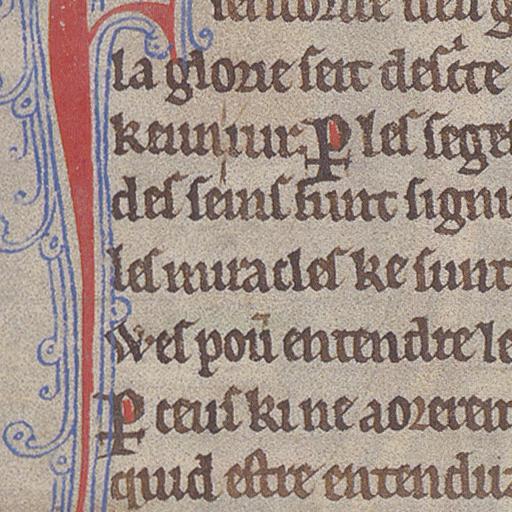 la glorie seit descrte
kenuiur. P les sege
des seins sunt signi
les miracles ke sunt
wes poū entendre le
P ceus ki ne aorerent
quid estre entenduz